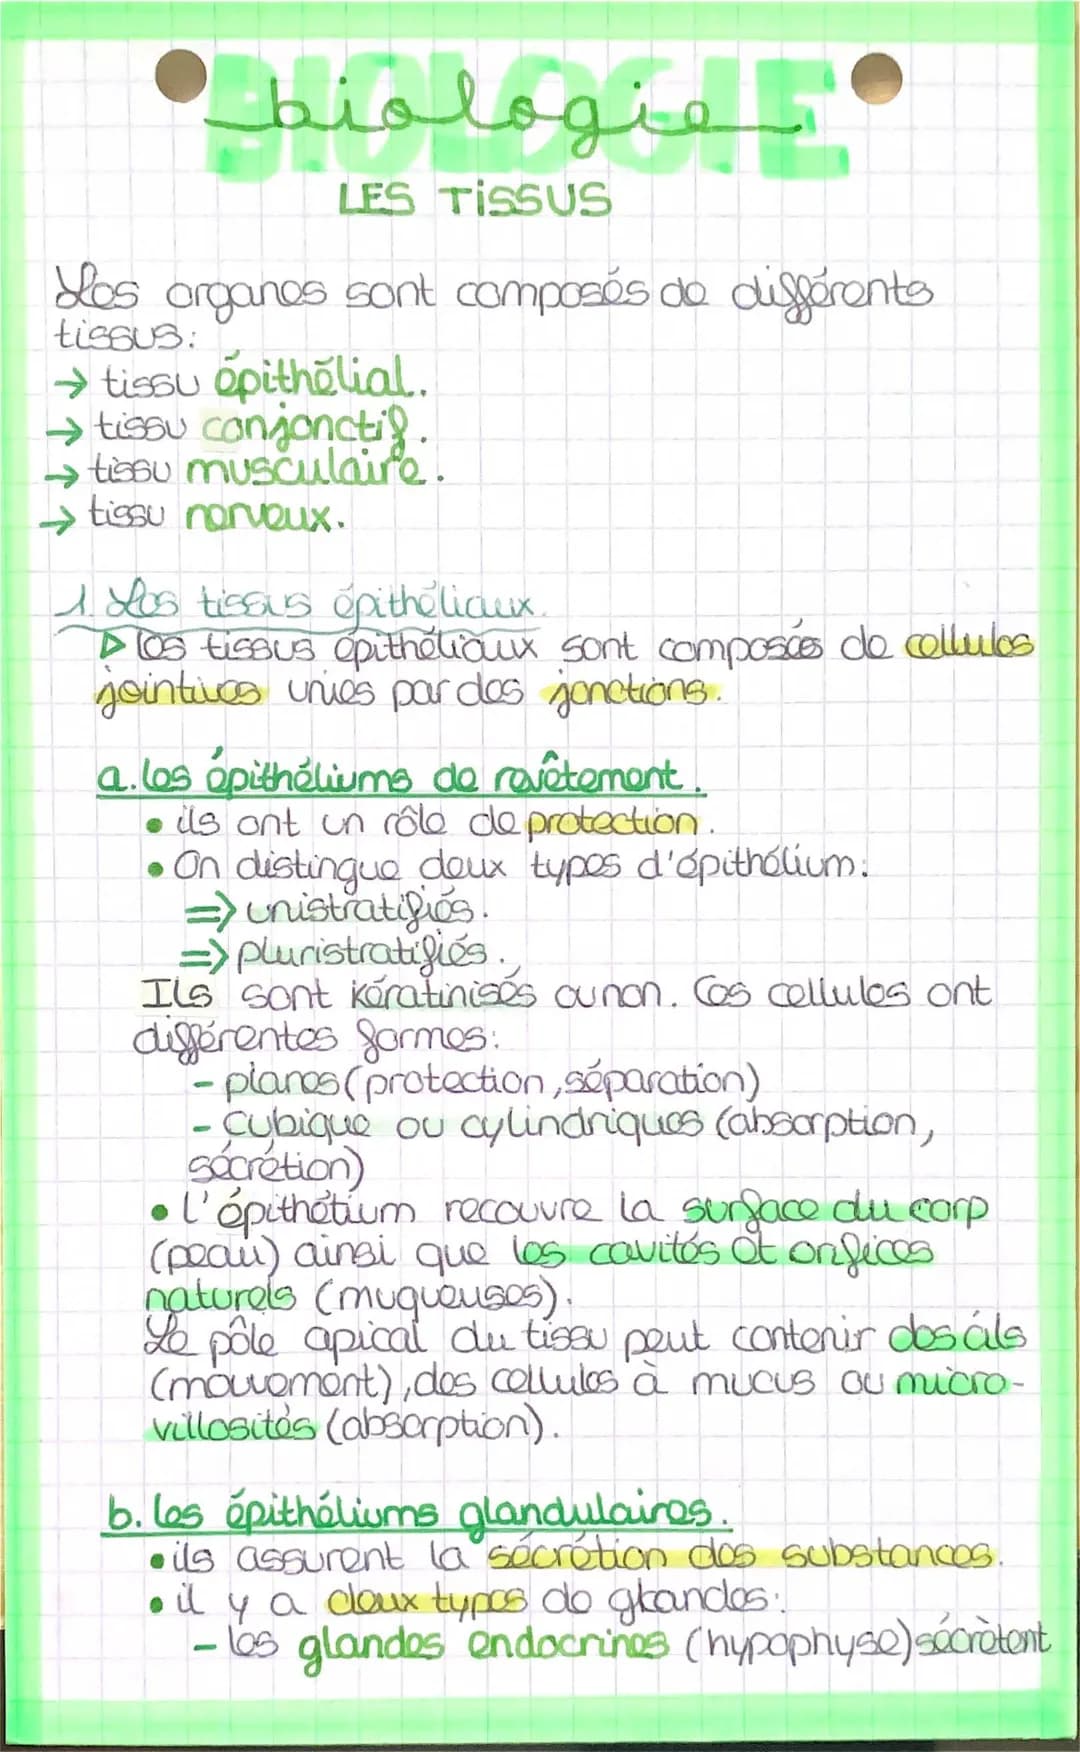 BIOLOGIE
biologie
LES TISSUS
Les organes sont composés de différents
tissus:
→ tissu épithélial.
→ tissu conjonctif.
→ tissu musculaire.
→ tissu nerveux.
1. Les tissus épithéliaux.
▷ les tissus épithéliaux sont composés de cellules
jointives unies par des jonctions.
a. les épithéliums de revêtement.
• ils ont un rôle de protection.
• On distingue deux types d'épithélium:
=> unistratifiés.
=> pluristratifiés.
Ils sont kératinisés ou non. Ces cellules ont
différentes formes:
- planes (protection, séparation)
- cubique ou cylindriques (absorption,
sécrétion)
• l'épithétium recouvre la surface du corp
(peau) ainsi que les cavités et orifices
naturels (muqueuses).
Le pôle apical du tissu peut contenir des cils
(mouvement), des cellules à mucus ou micro-
villosités (absorption).
b. les épithéliums glandulaires.
• ils assurent la sécrétion des substances.
• il y a deux types de glandes:
- les glandes endocrines (hypophyse) sécrètent